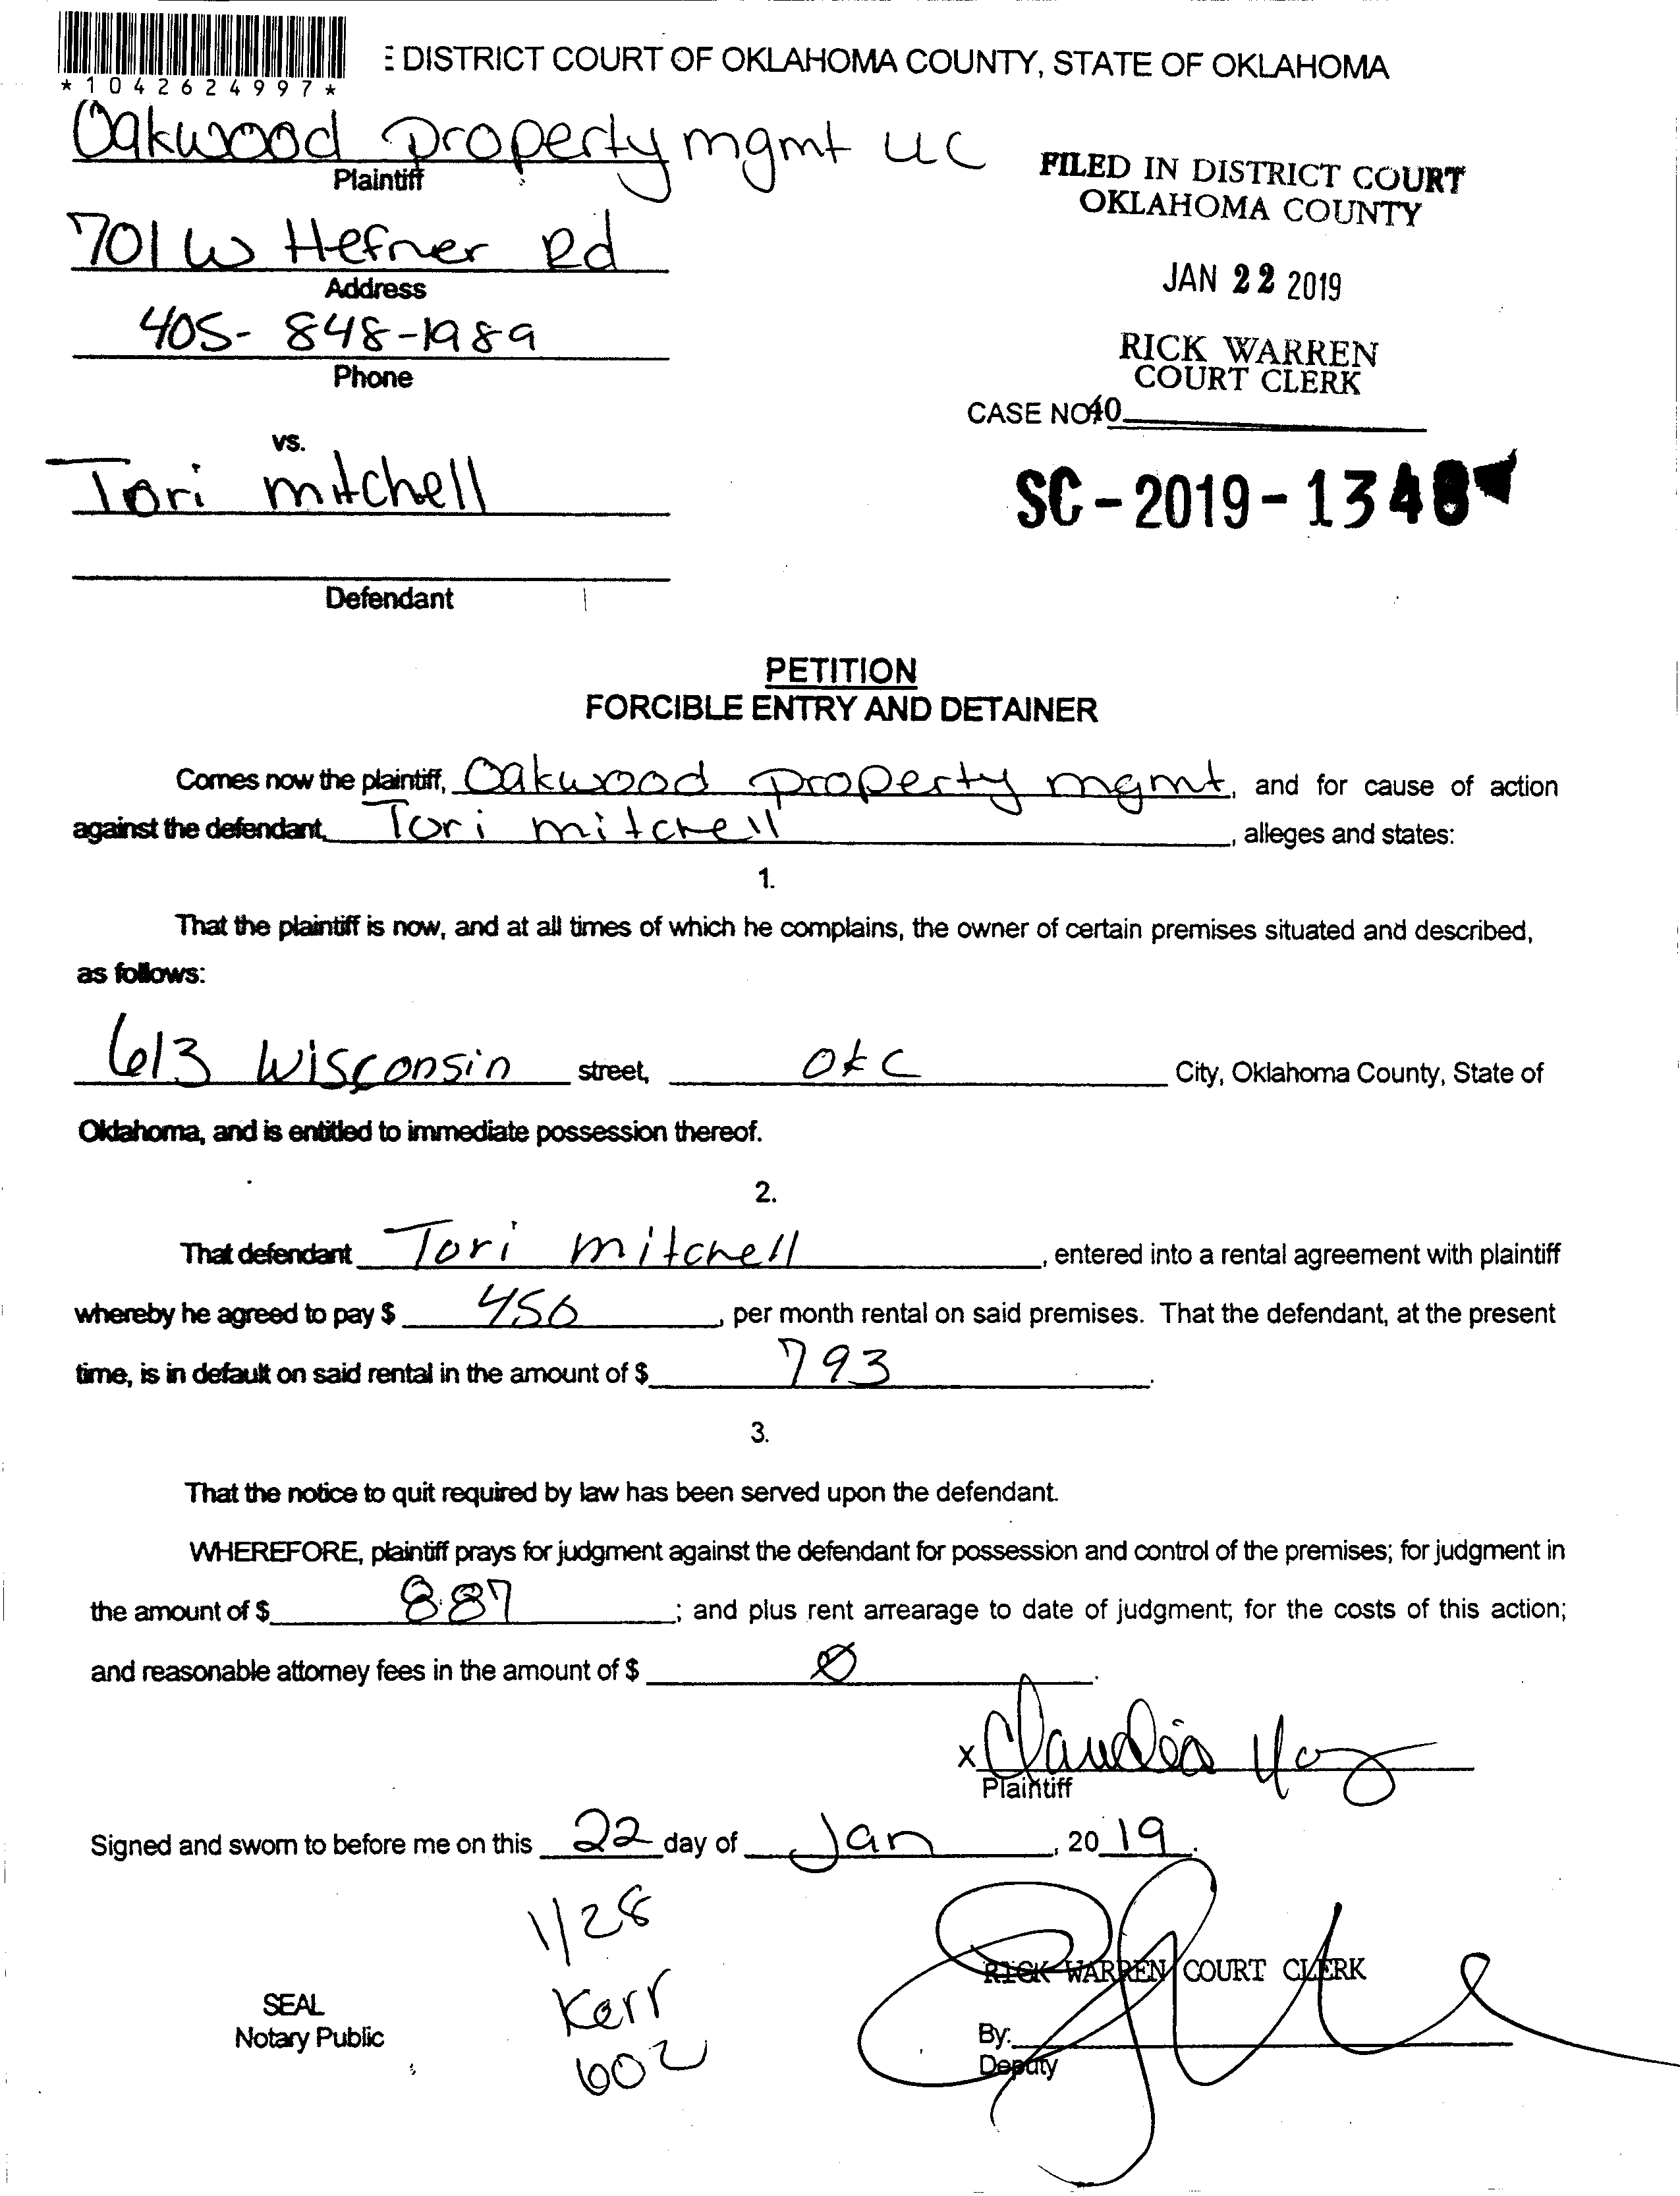 *1042624997*
DISTRICT COURT OF OKLAHOMA COUNTY, STATE OF OKLAHOMA
Oakwood property mgmt LLC
Plaintiff
FILED IN DISTRICT COURT
OKLAHOMA COUNTY
701 W Hefner Rd
Address
JAN 22 2019
405-848-1989
Phone
RICK WARREN
COURT CLERK
CASE NO 40
vs.
Tori mitchell
SC-2019-134
Defendant
PETITION
FORCIBLE ENTRY AND DETAINER
Comes now the plaintiff, Oakwood property mgmt, and for cause of action
against the defendant, Tori mitchell, alleges and states:
1.
That the plaintiff is now, and at all times of which he complains, the owner of certain premises situated and described,
as follows:
613 Wisconsin street, OKC City, Oklahoma County, State of
Oklahoma, and is entitled to immediate possession thereof.
2.
That defendant Tori mitchell, entered into a rental agreement with plaintiff
whereby he agreed to pay $ 450, per month rental on said premises. That the defendant, at the present
time, is in default on said rental in the amount of $ 793.
3.
That the notice to quit required by law has been served upon the defendant.
WHEREFORE, plaintiff prays for judgment against the defendant for possession and control of the premises; for judgment in
the amount of $ 887; and plus rent arrearage to date of judgment; for the costs of this action;
and reasonable attorney fees in the amount of $ 0.
x Claudia
Plaintiff
Signed and sworn to before me on this 22 day of Jan, 2019.
1/28
RICK WARREN COURT CLERK
SEAL
Kerr
Notary Public
By:
602
Deputy